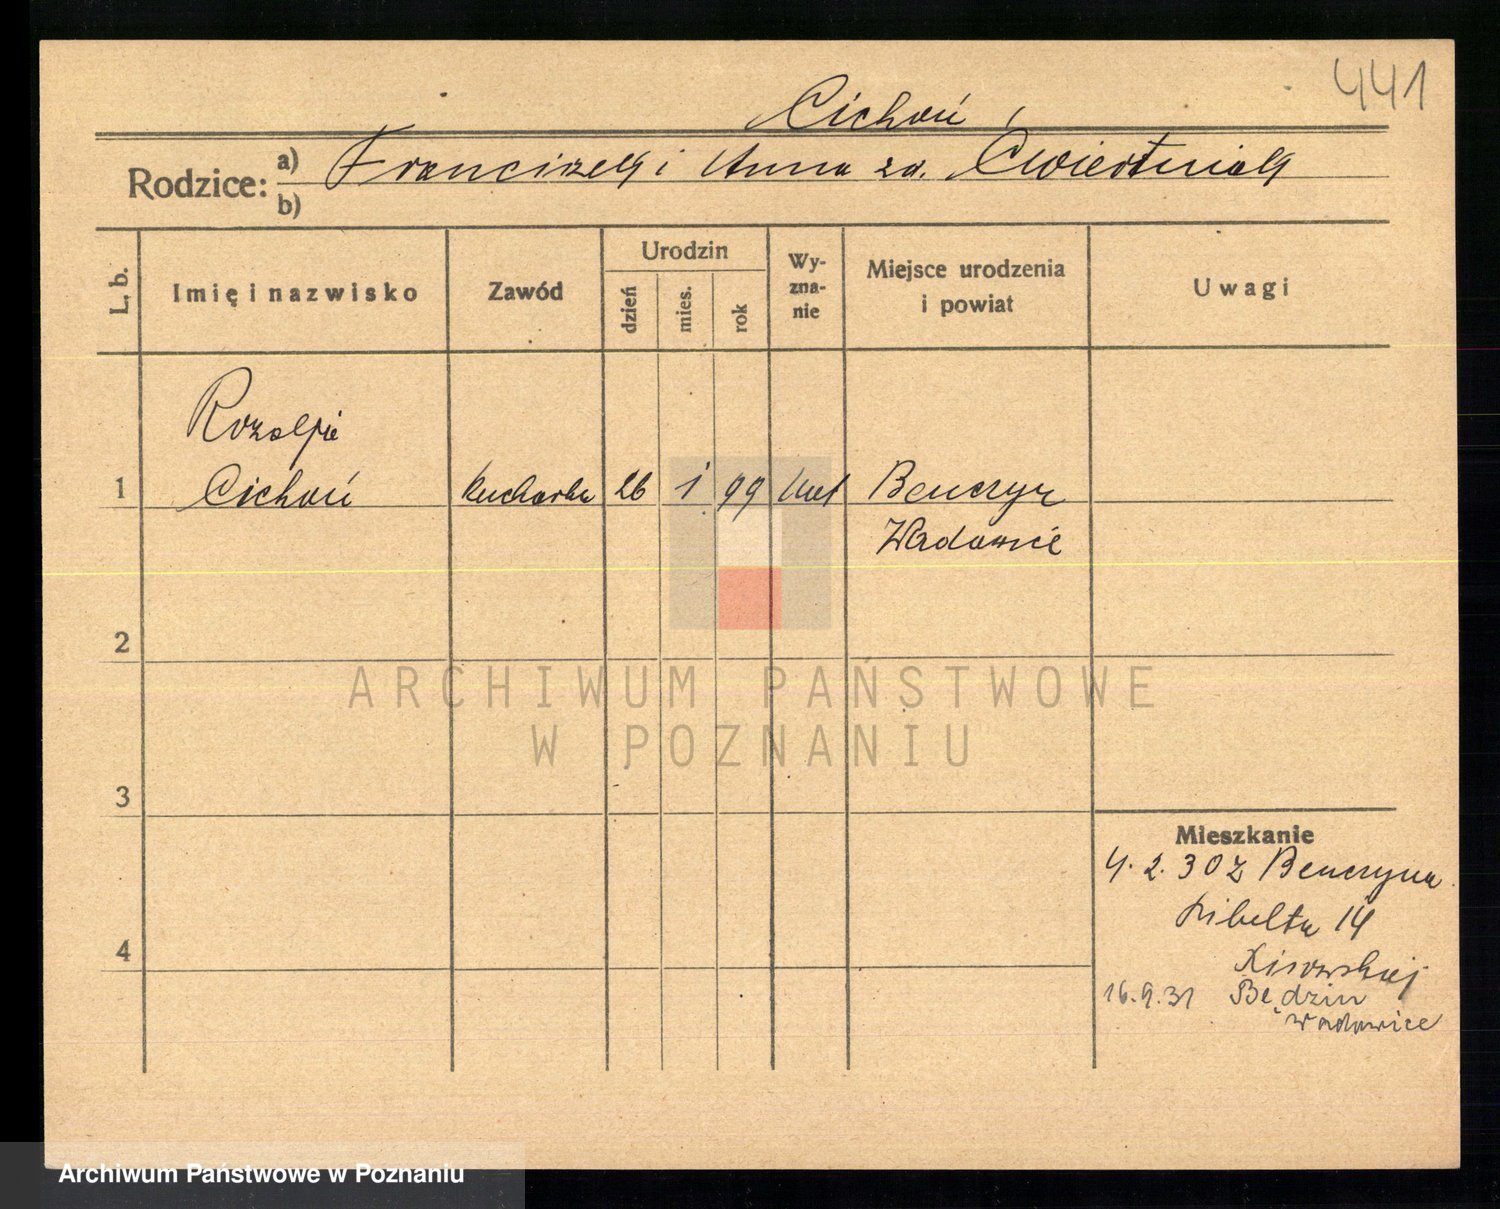 441
Cichoń
Rodzice: a) Franciszek i Anna zd. Ćwiertniak
b)
L. b. Imię i nazwisko Zawód Urodzin dzień mies. rok Wyznanie Miejsce urodzenia i powiat Uwagi
Rozalja
1 Cichoń kucharka 26 1 99 kat Benczyn
Wadowice
2
ARCHIWUM PAŃSTWOWE
W POZNANIU
3
Mieszkanie
4.2.30 z Benczyna
Libelta 14
4
16.9.31 Będzin
Wadowice
Archiwum Państwowe w Poznaniu